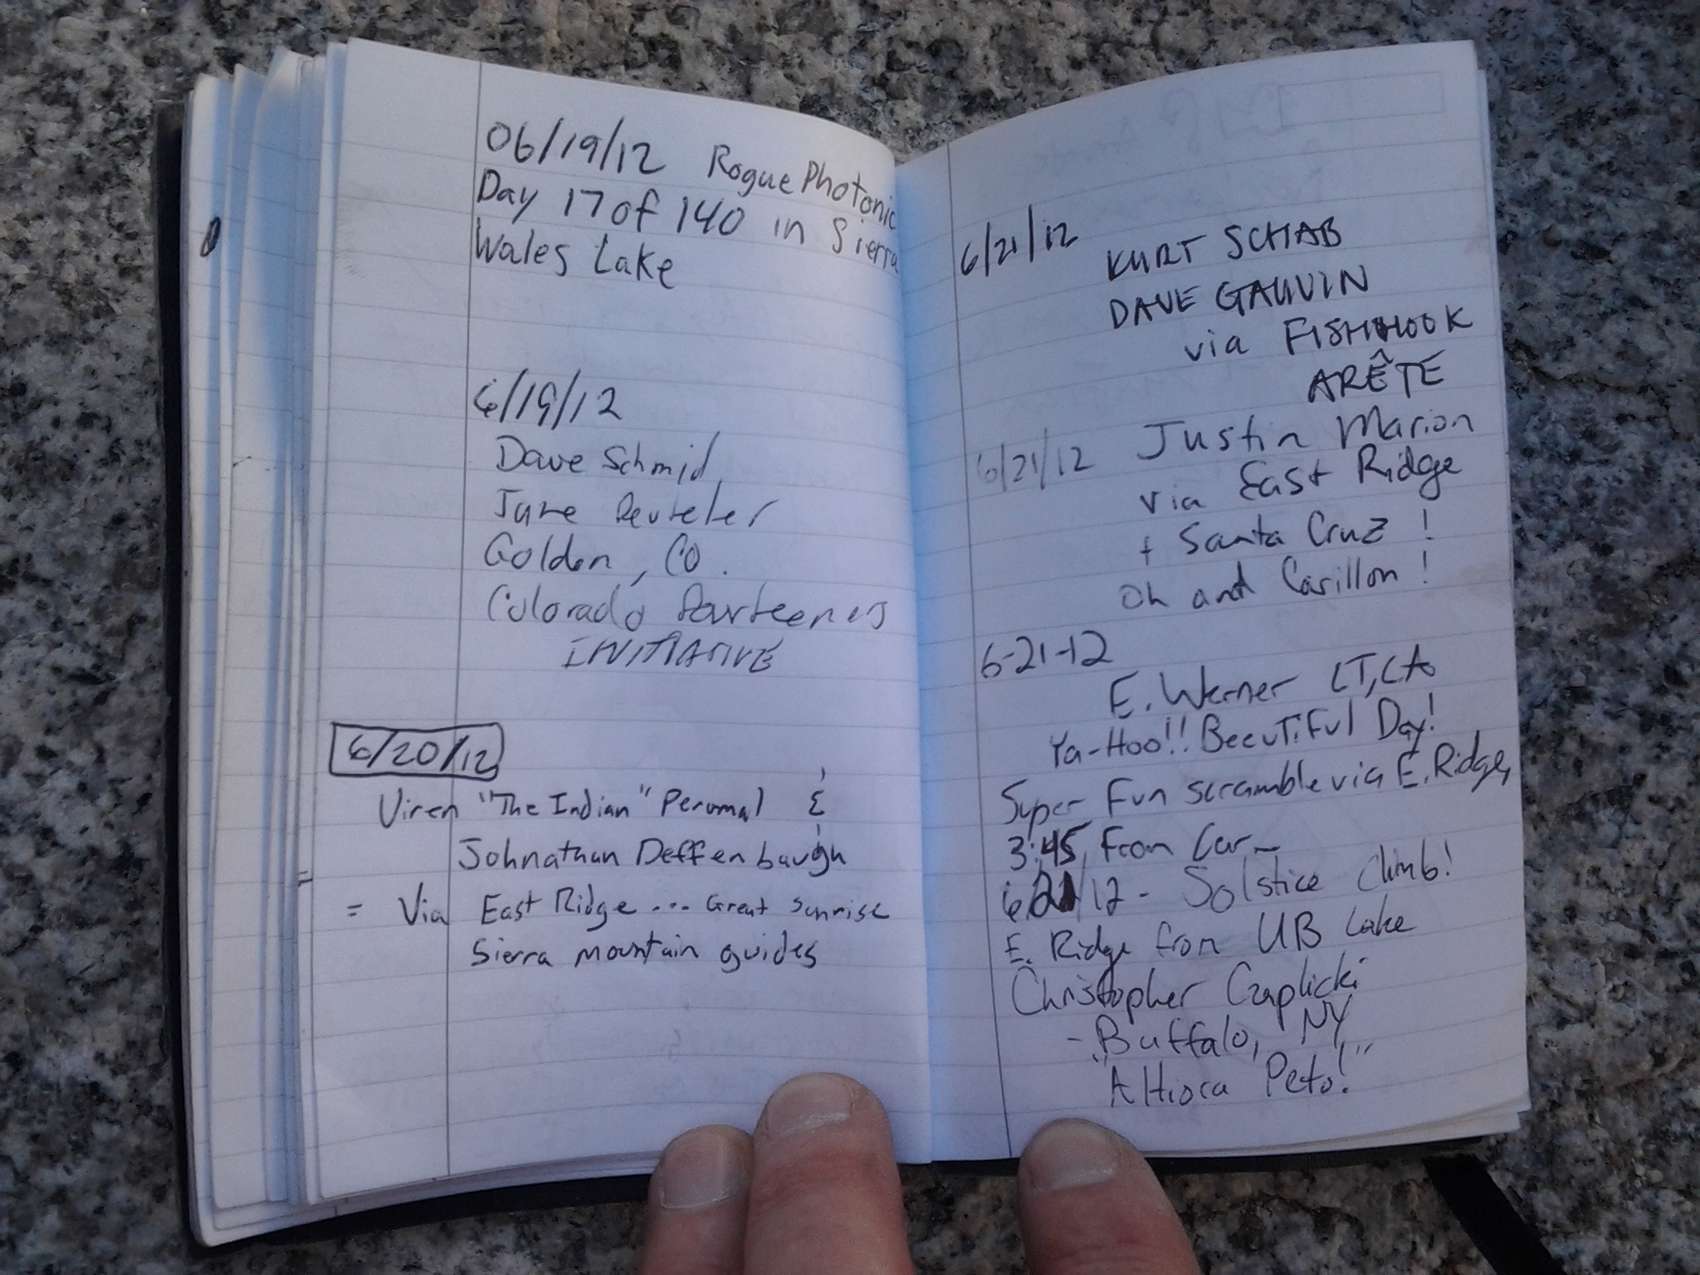 06/19/12 Rogue Photonic
Day 17 of 140 in Sierra
Wales Lake
6/19/12
Dave Schmid,
Golden, CO.
Colorado
INITIATIVE
6/20/12
Viren "The Indian" Perumal &
Johnathan Deffenbaugh
= Via East Ridge ... Great sunrise
Sierra mountain guides
6/21/12 KURT SCHAB
DAVE GAUVIN
via FISHHOOK
ARÊTE
6/21/12 Justin Marion
via East Ridge
+ Santa Cruz !
Oh and Carillon !
6-21-12
E. Werner LT, CA
Ya-Hoo!! Beeutiful Day!
Super Fun scramble via E. Ridge,
3:45 From Car
6/21/12 - Solstice Climb!
E. Ridge from UB Lake
Christopher Czaplicki
- Buffalo, NY
"Altiora Peto!"